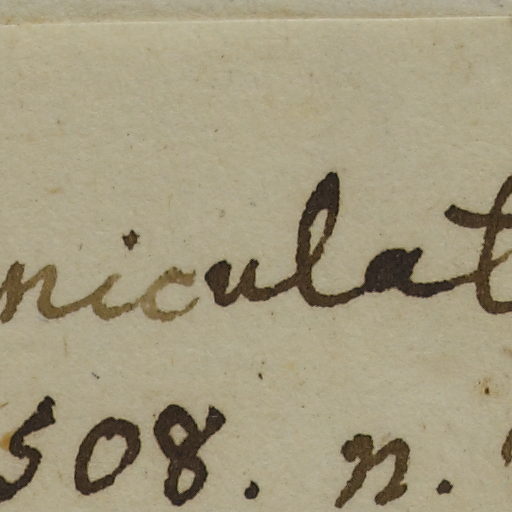 niculat
508. n.